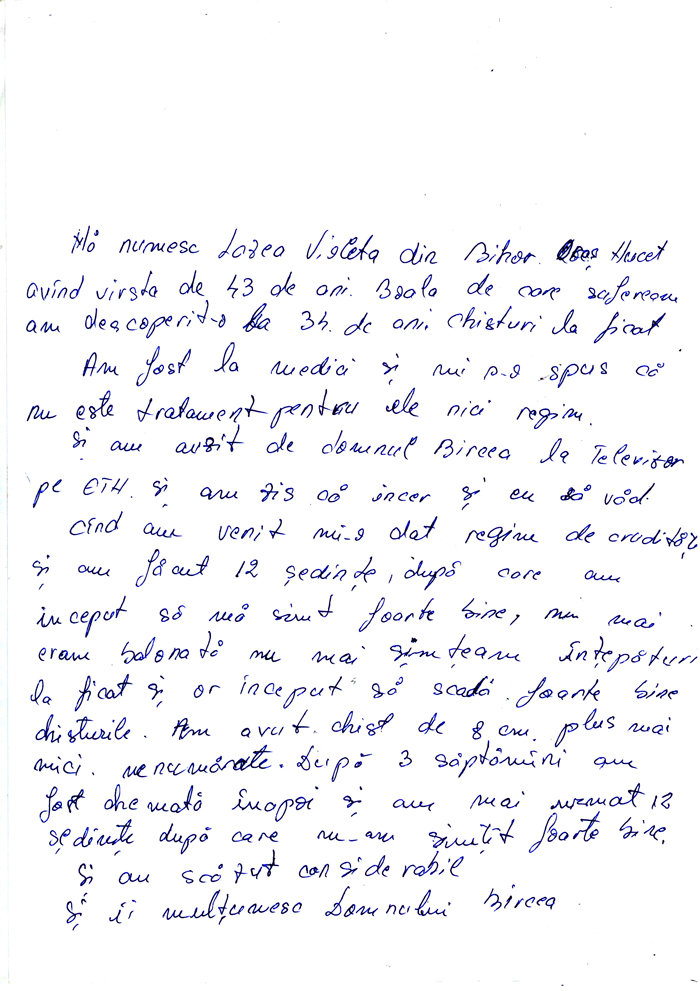 Mă numesc Lazea Violeta din Bihor. Oraș Nucet
avînd vîrsta de 43 de ani. Boala de care sufeream
am descoperit-o la 34. de ani. chisturi la ficat
Am fost la medici și mi s-a spus că
nu este tratament pentru ele nici regim.
Și am auzit de domnul Bircea la Televizor
pe ETH. și am zis că incer și eu să văd.
Cînd am venit mi-a dat regim de crudităț
și am făcut 12 ședințe, după care am
inceput să mă simt foarte bine, nu mai
eram balonată nu mai simțeam înțepături
la ficat și or inceput să scadă foarte bine
chisturile. Am avut chist de 8 cm. plus mai
mici. nenumărate. După 3 săptămîni am
fost chemată înapoi și am mai urmat 12
ședințe după care m-am simțit foarte bine.
Și au scăzut considerabil
Și îi mulțumesc Domnului Bircea